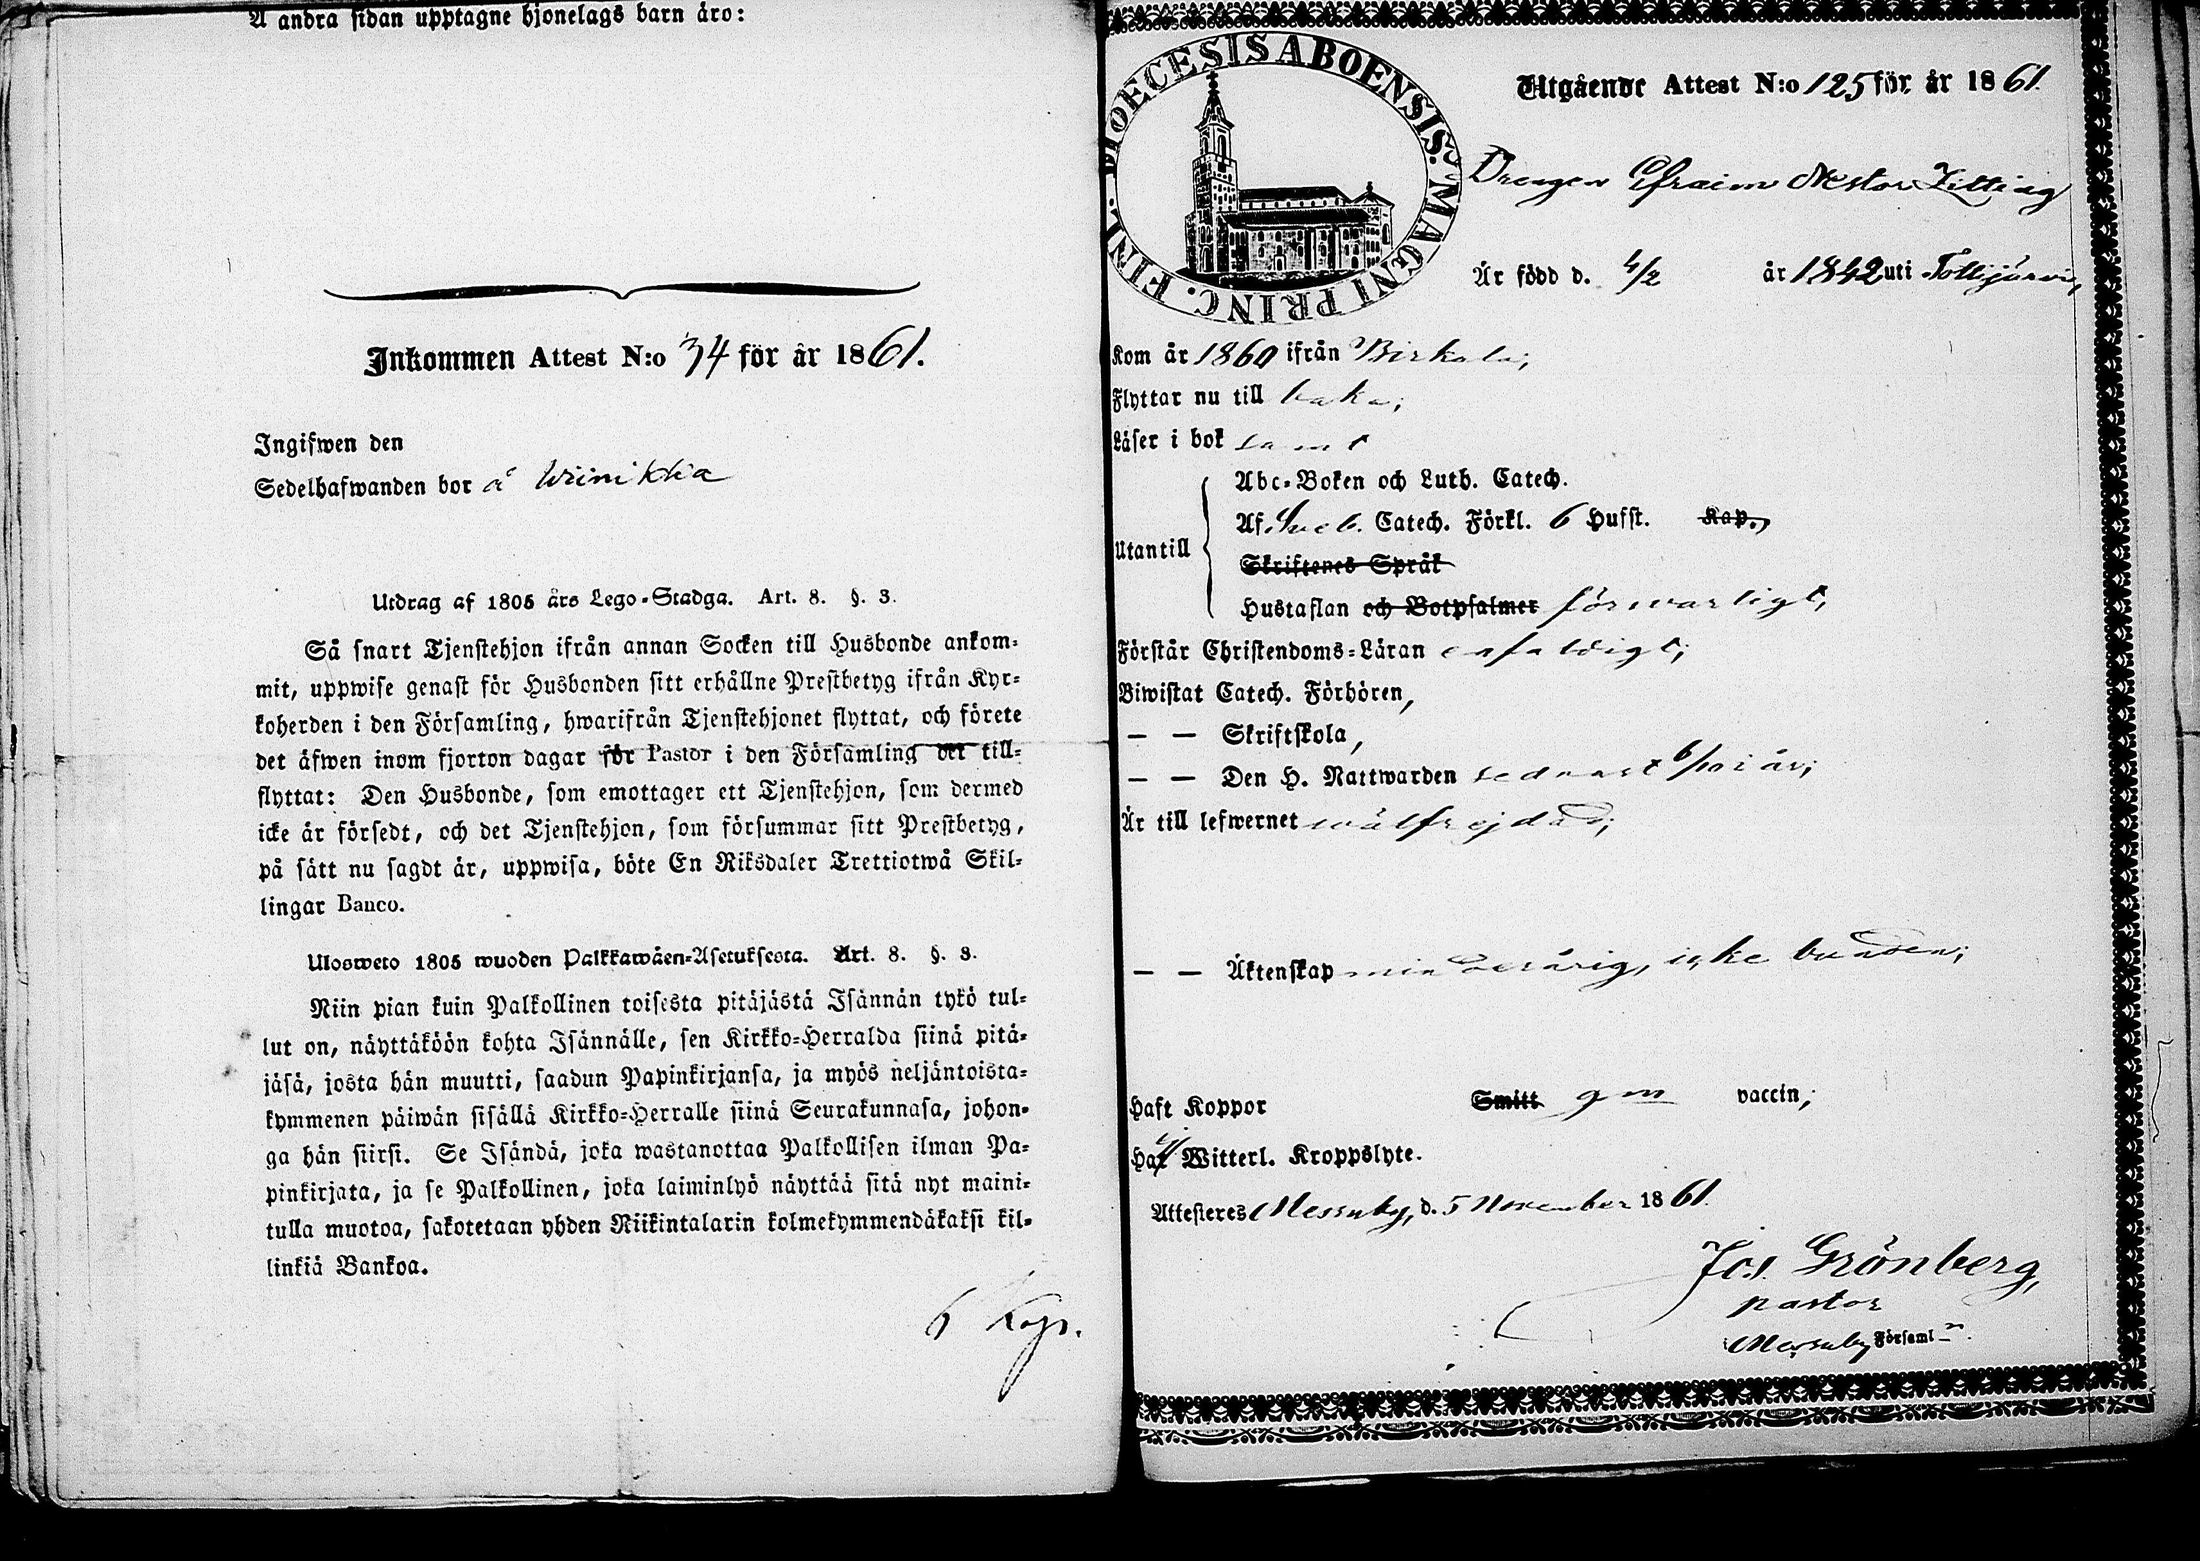 Å andra sidan upptagne hjonelags barn äro:
Inkommen Attest N:o 34 för år 1861.
Ingifwen den
Sedelhafwanden bor å
Utdrag af 1805 års Lego-Stadga. Art. 8. §. 3.
Så snart Tjenstehjon ifrån annan Socken till Husbonde ankom-
mit, uppwise genast för Husbonden sitt erhållne Prestbetyg ifrån Kyr-
koherden i den Församling, hwarifrån Tjenstehjonet flyttat, och förete
det äfwen inom fjorton dagar för Pastor i den Församling det till-
flyttat: Den Husbonde, som emottager ett Tjenstehjon, som dermed
icke är försedt, och det Tjenstehjon, som försummar sitt Prestbetyg,
på sätt nu sagdt är, uppwisa, böte En Riksdaler Trettiotwå Skil-
lingar Banco.
Ulosweto 1805 wuoden Palkkawäen-Asetuksesta. Art. 8. §. 3.
Niin pian kuin Palkollinen toisesta pitäjästä Isännän tykö tul-
lut on, näyttäköön kohta Isännälle, sen Kirkko-Herralda siinä pitä-
jäsä, josta hän muutti, saadun Papinkirjansa, ja myös neljäntoista-
kymmenen päiwän sisällä Kirkko-Herralle siinä Seurakunnasa, johon-
ga hän siirsi. Se Isändä, joka wastanottaa Palkollisen ilman Pa-
pinkirjata, ja se Palkollinen, joka laiminlyö näyttää sitä nyt maini-
tulla muotoa, sakotetaan yhden Riikintalarin kolmekymmendäkaksi kil-
linkiä Bankoa.
6 Kop.
DIOECESIS ABOENSIS. MAGNI PRINC. FINL.
Utgående Attest N:o 125 för år 1861.
Drengen Efraim Nestor Zitting
Är född d. 4/2 år 1842 uti Tottijärvi,
Kom år 1860 ifrån Birkala;
Flyttar nu till baka;
Läser i bok samt
Abc-Boken och Luth. Catech.
Af Sveb. Catech. Förkl. 6 Hufst. Kap.,
Utantill
Skriftenes Språk
Hustaflan och Botpsalmer förswarligt,
Förstår Christendoms-Läran enfaldigt;
Biwistat Catech. Förhören,
— — Skriftskola,
— — Den H. Nattwarden sednast 6/10 i år;
Är till lefwernet wälfrejdad;
— — Äktenskap minderårig, icke bunden;
Haft Koppor Smitt gm vaccin;
Har ej Witterl. Kroppslyte.
Attesteres Messuby, d. 5 November 1861.
Jos. Grönberg,
pastor
Messuby Församl_n.